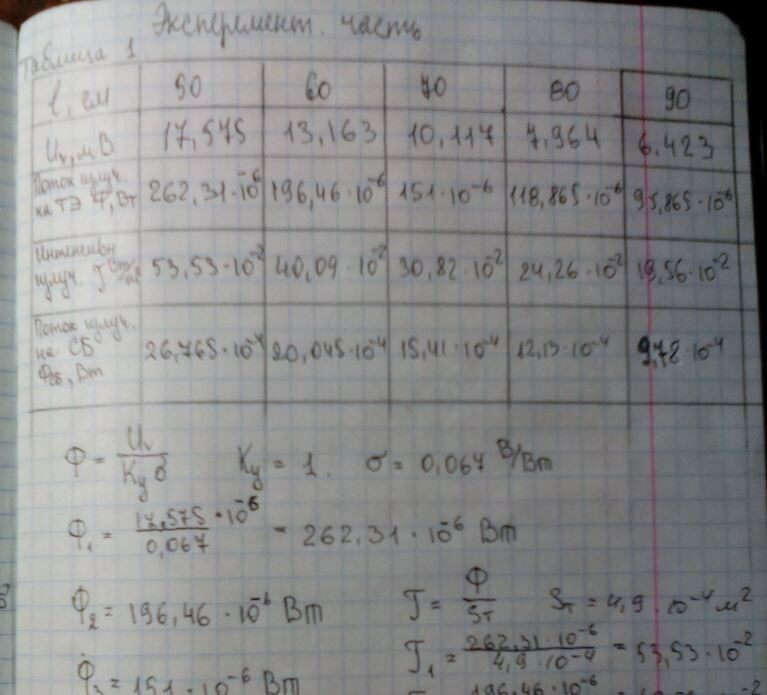 Эксперемент. часть
Таблица 1
l, см 50 60 70 80 90
Uv, мВ 17,575 13,163 10,117 7,964 6,423
Поток излуч. на ТЭ Ф, Вт 262,31·10⁻⁶ 196,46·10⁻⁶ 151·10⁻⁶ 118,865·10⁻⁶ 95,865·10⁻⁶
излуч. J Вт/м² 53,53·10⁻² 40,09·10⁻² 30,82·10⁻² 24,26·10⁻² 19,56·10⁻²
Поток излуч. на СБ Фсб, Вт 26,765·10⁻⁴ 20,045·10⁻⁴ 15,41·10⁻⁴ 12,13·10⁻⁴ 9,78·10⁻⁴
Ф = Uv/(Kу σ) Kу = 1. σ = 0,067 В/Вт
Ф₁ = 17,575·10⁻⁶/0,067 = 262,31·10⁻⁶ Вт
Ф₂ = 196,46·10⁻⁶ Вт J = Ф/Sт Sт = 4,9·10⁻⁴ м²
J₁ = 262,31·10⁻⁶/4,9·10⁻⁴ = 53,53·10⁻²
Ф₃ = 151·10⁻⁶ Вт 196,46·10⁻⁶